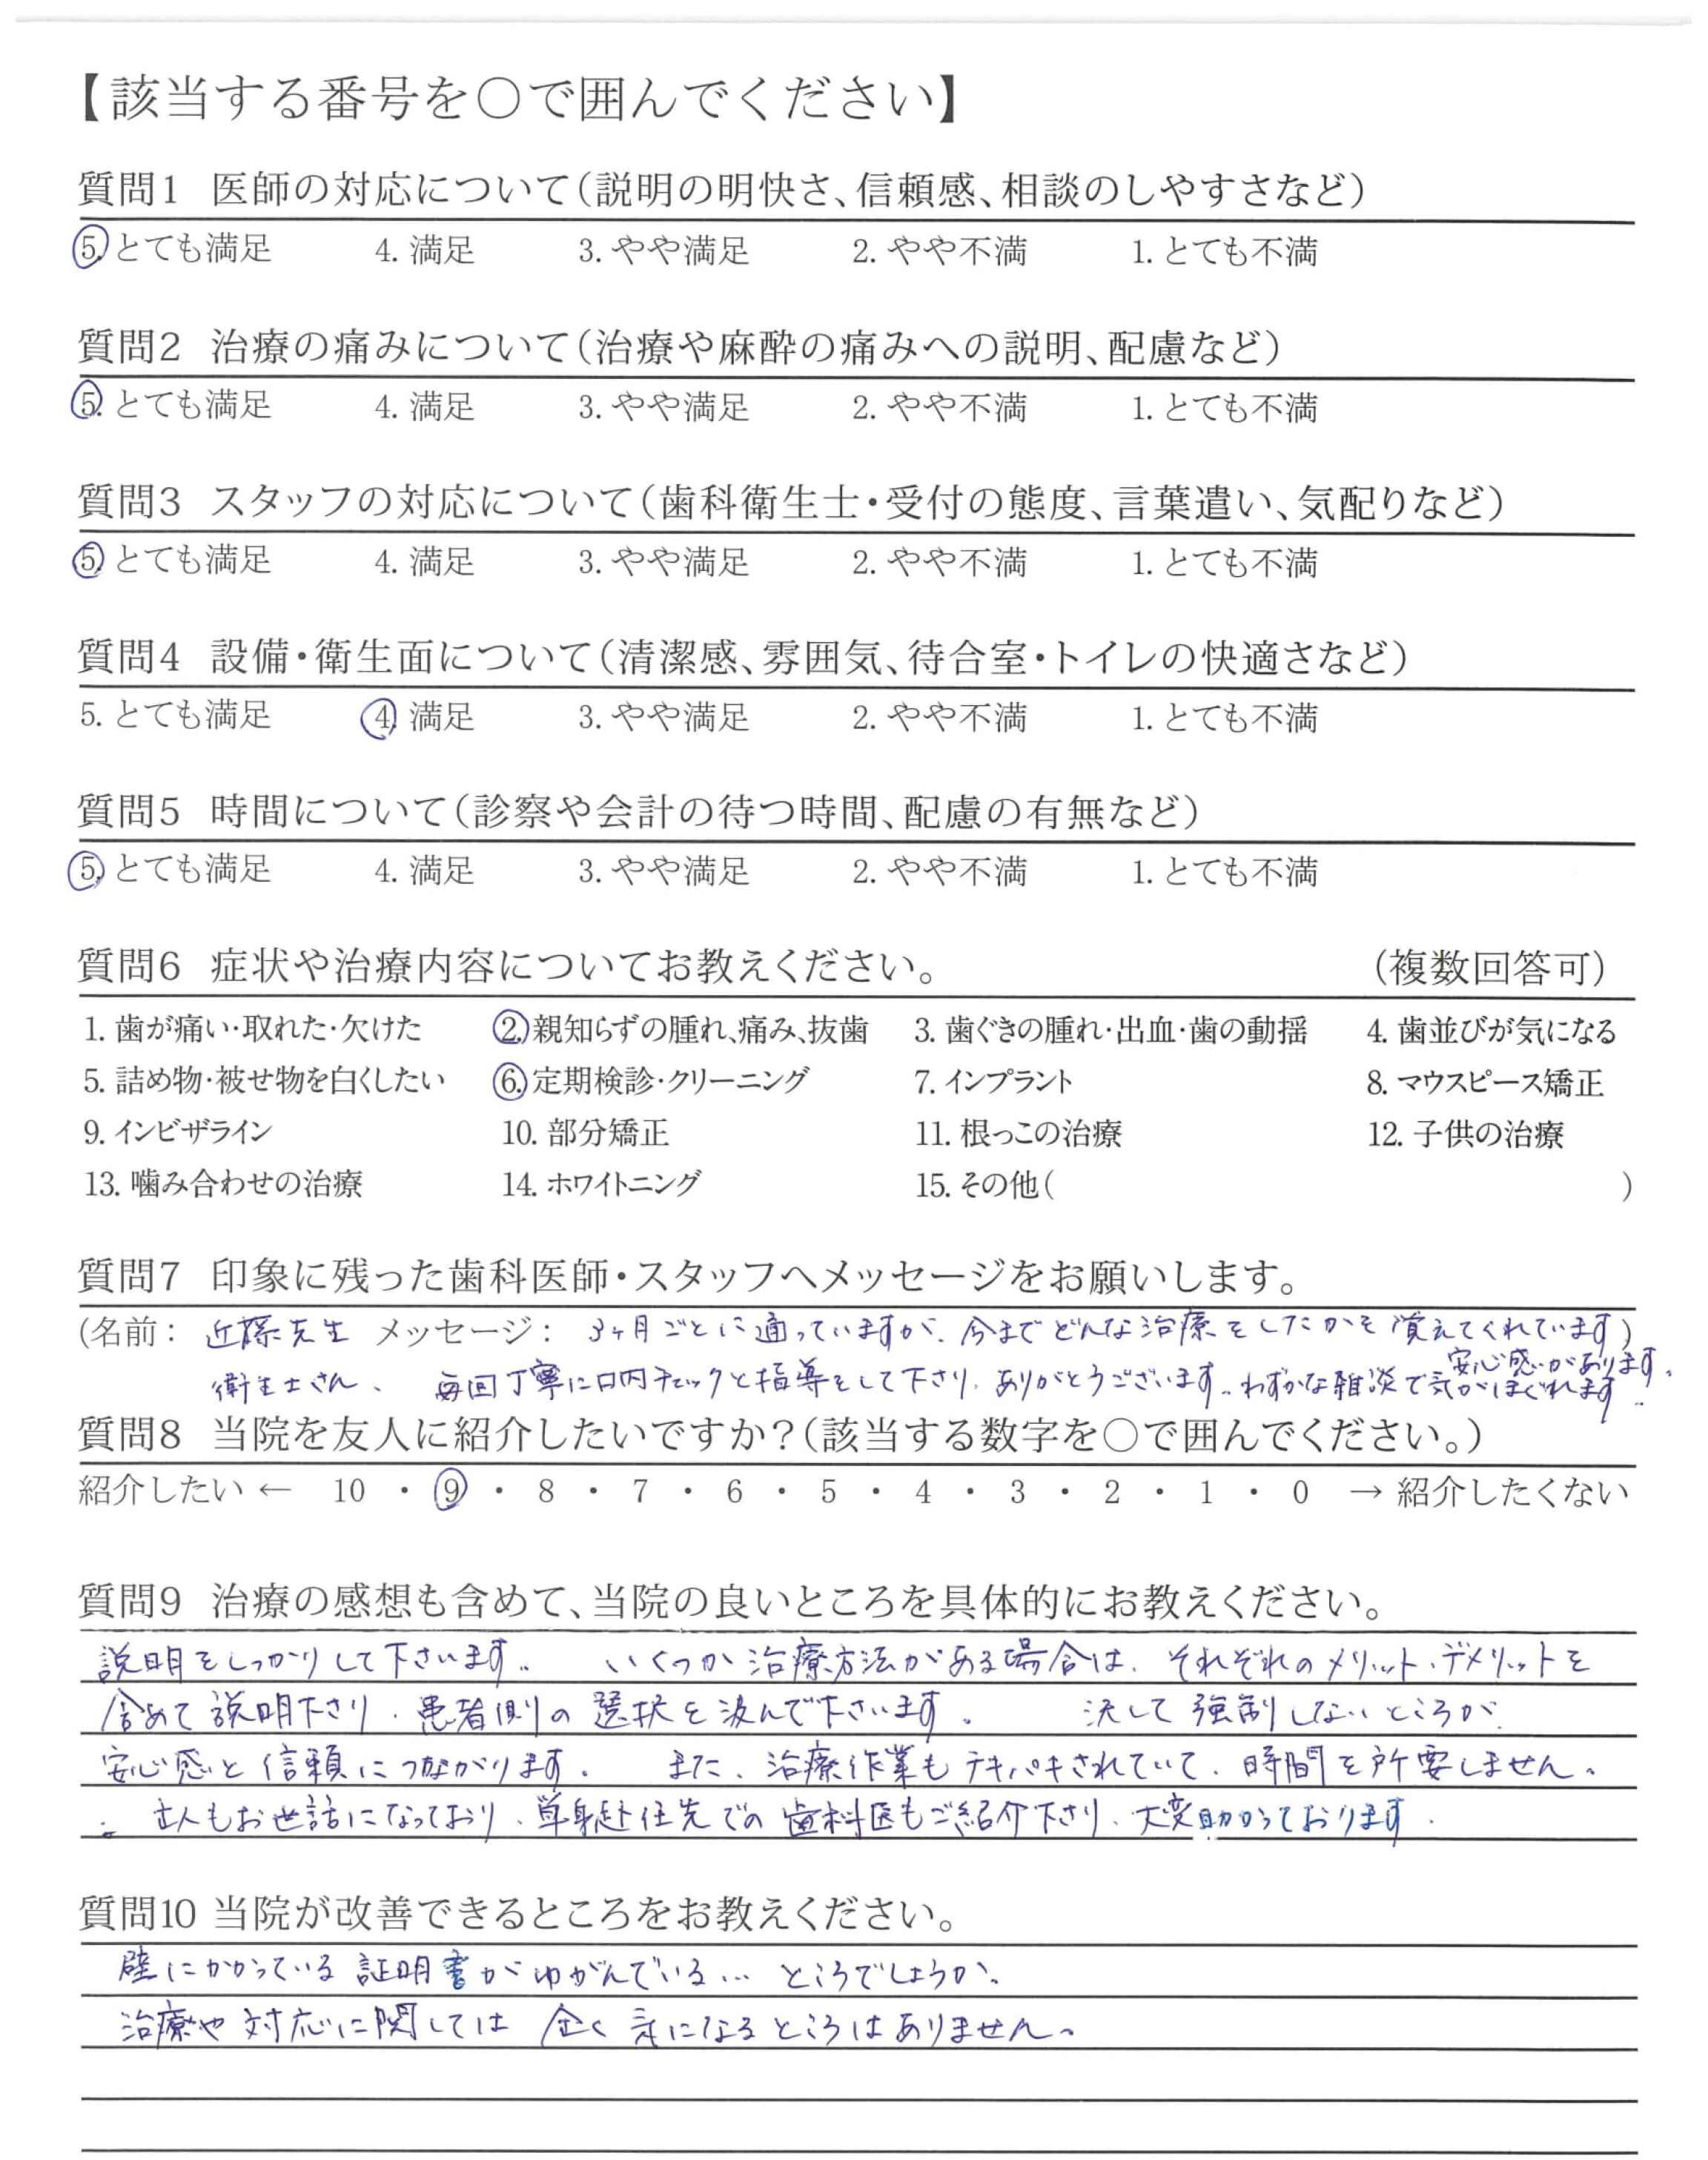 【該当する番号を〇で囲んでください】
質問1 医師の対応について(説明の明快さ、信頼感、相談のしやすさなど)
5. とても満足 4. 満足 3. やや満足 2. やや不満 1. とても不満
質問2 治療の痛みについて(治療や麻酔の痛みへの説明、配慮など)
5. とても満足 4. 満足 3. やや満足 2. やや不満 1. とても不満
質問3 スタッフの対応について(歯科衛生士・受付の態度、言葉遣い、気配りなど)
5. とても満足 4. 満足 3. やや満足 2. やや不満 1. とても不満
質問4 設備・衛生面について(清潔感、雰囲気、待合室・トイレの快適さなど)
5. とても満足 4. 満足 3. やや満足 2. やや不満 1. とても不満
質問5 時間について(診察や会計の待つ時間、配慮の有無など)
5. とても満足 4. 満足 3. やや満足 2. やや不満 1. とても不満
質問6 症状や治療内容についてお教えください。 (複数回答可)
1. 歯が痛い・取れた・欠けた 2. 親知らずの腫れ、痛み、抜歯 3. 歯ぐきの腫れ・出血・歯の動揺 4. 歯並びが気になる
5. 詰め物・被せ物を白くしたい 6. 定期検診・クリーニング 7. インプラント 8. マウスピース矯正
9. インビザライン 10. 部分矯正 11. 根っこの治療 12. 子供の治療
13. 噛み合わせの治療 14. ホワイトニング 15. その他( )
質問7 印象に残った歯科医師・スタッフへメッセージをお願いします。
(名前: 近藤先生 メッセージ: 3ヶ月ごとに通っていますが、今までどんな治療をしたかを覚えてくれています)
安心感があります。
衛生士さん、 毎回丁寧に口内チェックと指導をして下さり、ありがとうございます。わずかな雑談で気がほぐれます。
質問8 当院を友人に紹介したいですか?(該当する数字を〇で囲んでください。)
紹介したい ← 10 ・ 9 ・ 8 ・ 7 ・ 6 ・ 5 ・ 4 ・ 3 ・ 2 ・ 1 ・ 0 → 紹介したくない
質問9 治療の感想も含めて、当院の良いところを具体的にお教えください。
説明をしっかりして下さいます。 いくつか治療方法がある場合は、それぞれのメリット、デメリットを
含めて説明下さり、患者側の選択を汲んで下さいます。 決して強制しないところが、
安心感と信頼につながります。 また、治療作業もテキパキされていて、時間を所要しません。
主人もお世話になっており、単身赴任先での歯科医もご紹介下さり、大変助かっております。
質問10 当院が改善できるところをお教えください。
壁にかかっている証明書がゆがんでいる… ところでしょうか。
治療や対応に関しては全く気になるところはありません。